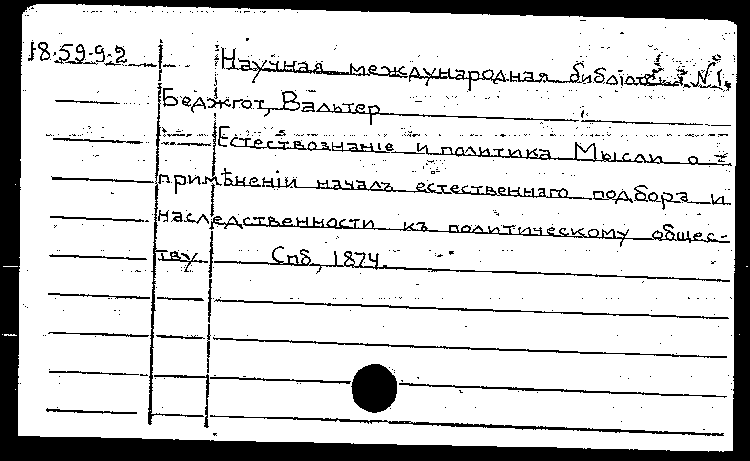 18.59.9.2 Научная международная библіоте. №1.
Беджгот, Вальтер
Естествознаніе и политика Мысли о
примѣненіи началъ естественнаго подбора и
наследственности къ политическому общес-
тву Спб, 1874.